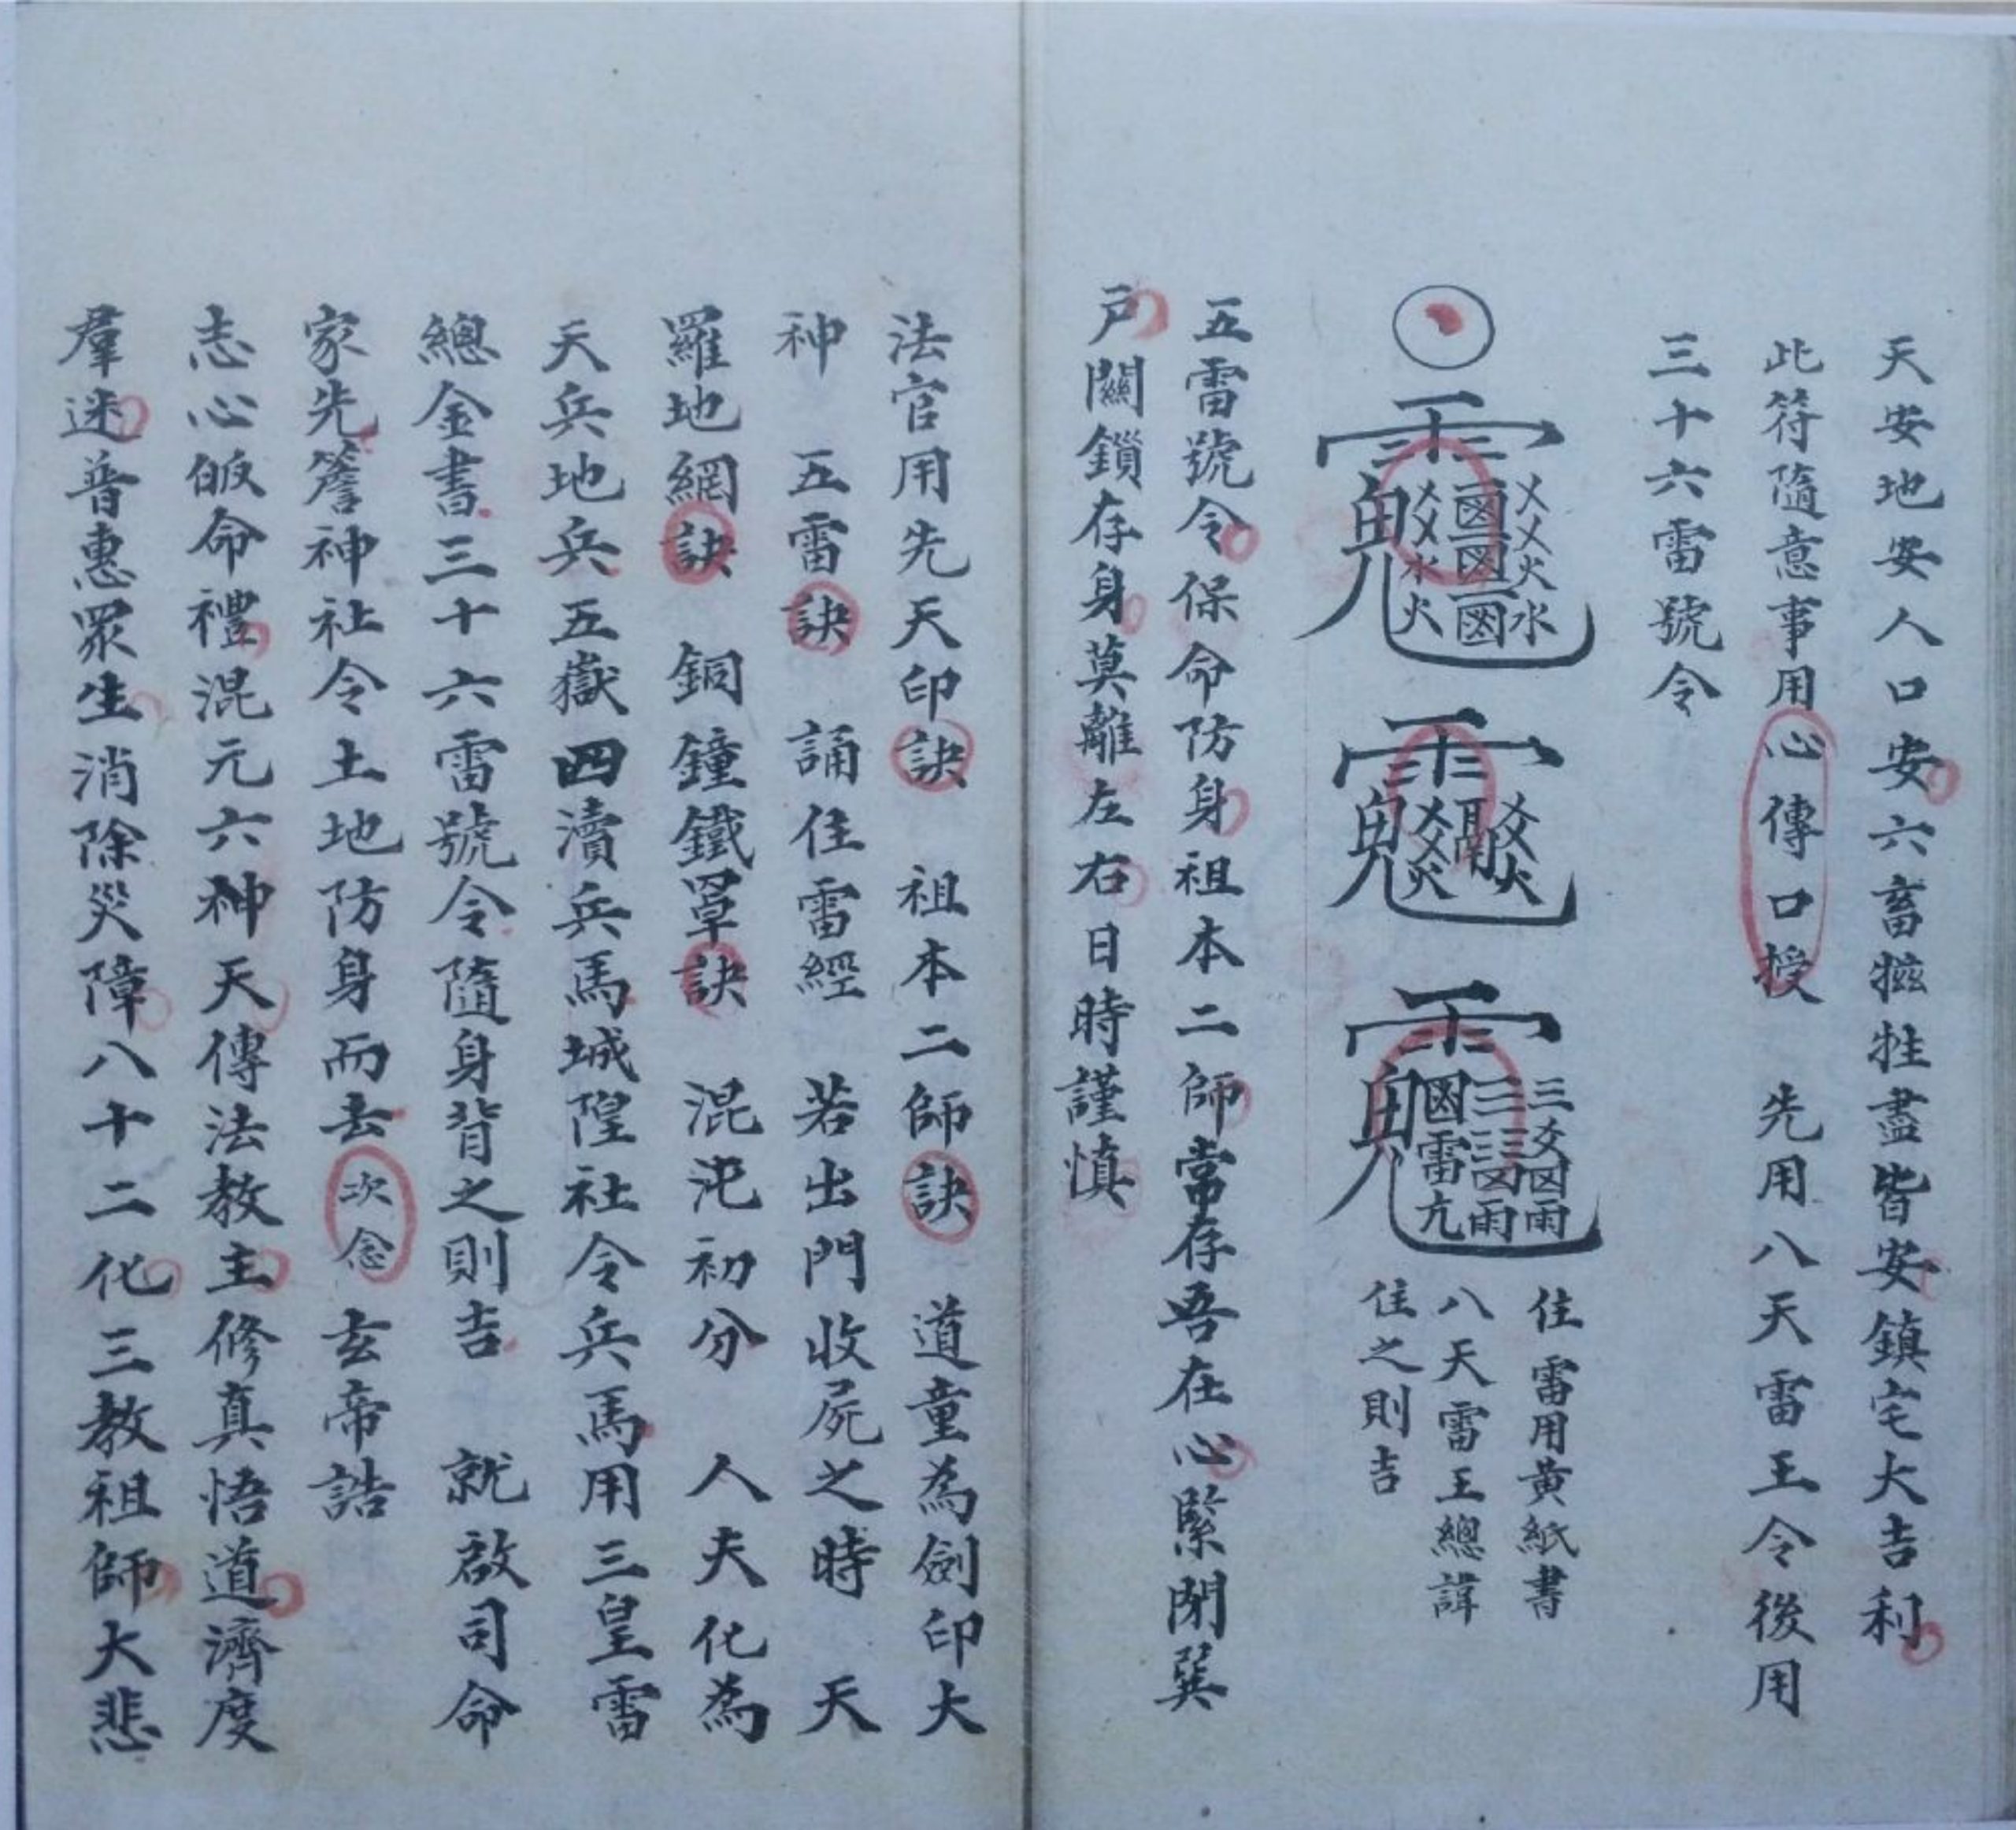 天安地安人口安六畜牷牲盡皆安鎮宅大吉利
此符隨意事用心傳口授 先用八天雷王令後用
三十六雷號令
住雷用黄紙書
八天雷王總諱
住之則吉
五雷號令保命防身祖本二師常存吾在心緊閉巽
戸關鎖存身莫離左右日時謹慎
法官用先天印訣 祖本二師訣 道童為劍印大
神 五雷訣 誦住雷經 若出門收屍之時 天
羅地網訣 銅鐘鐵罩訣 混沌初分 人夫化為
天兵地兵五嶽四瀆兵馬城隍社令兵馬用三皇雷
總金書三十六雷號令隨身背之則吉 就啟司命
家先簷神社令土地防身而去次念玄帝誥
志心皈命禮混元六神天傳法教主修真悟道濟度
羣迷普惠眾生消除災障八十二化三教祖師大悲